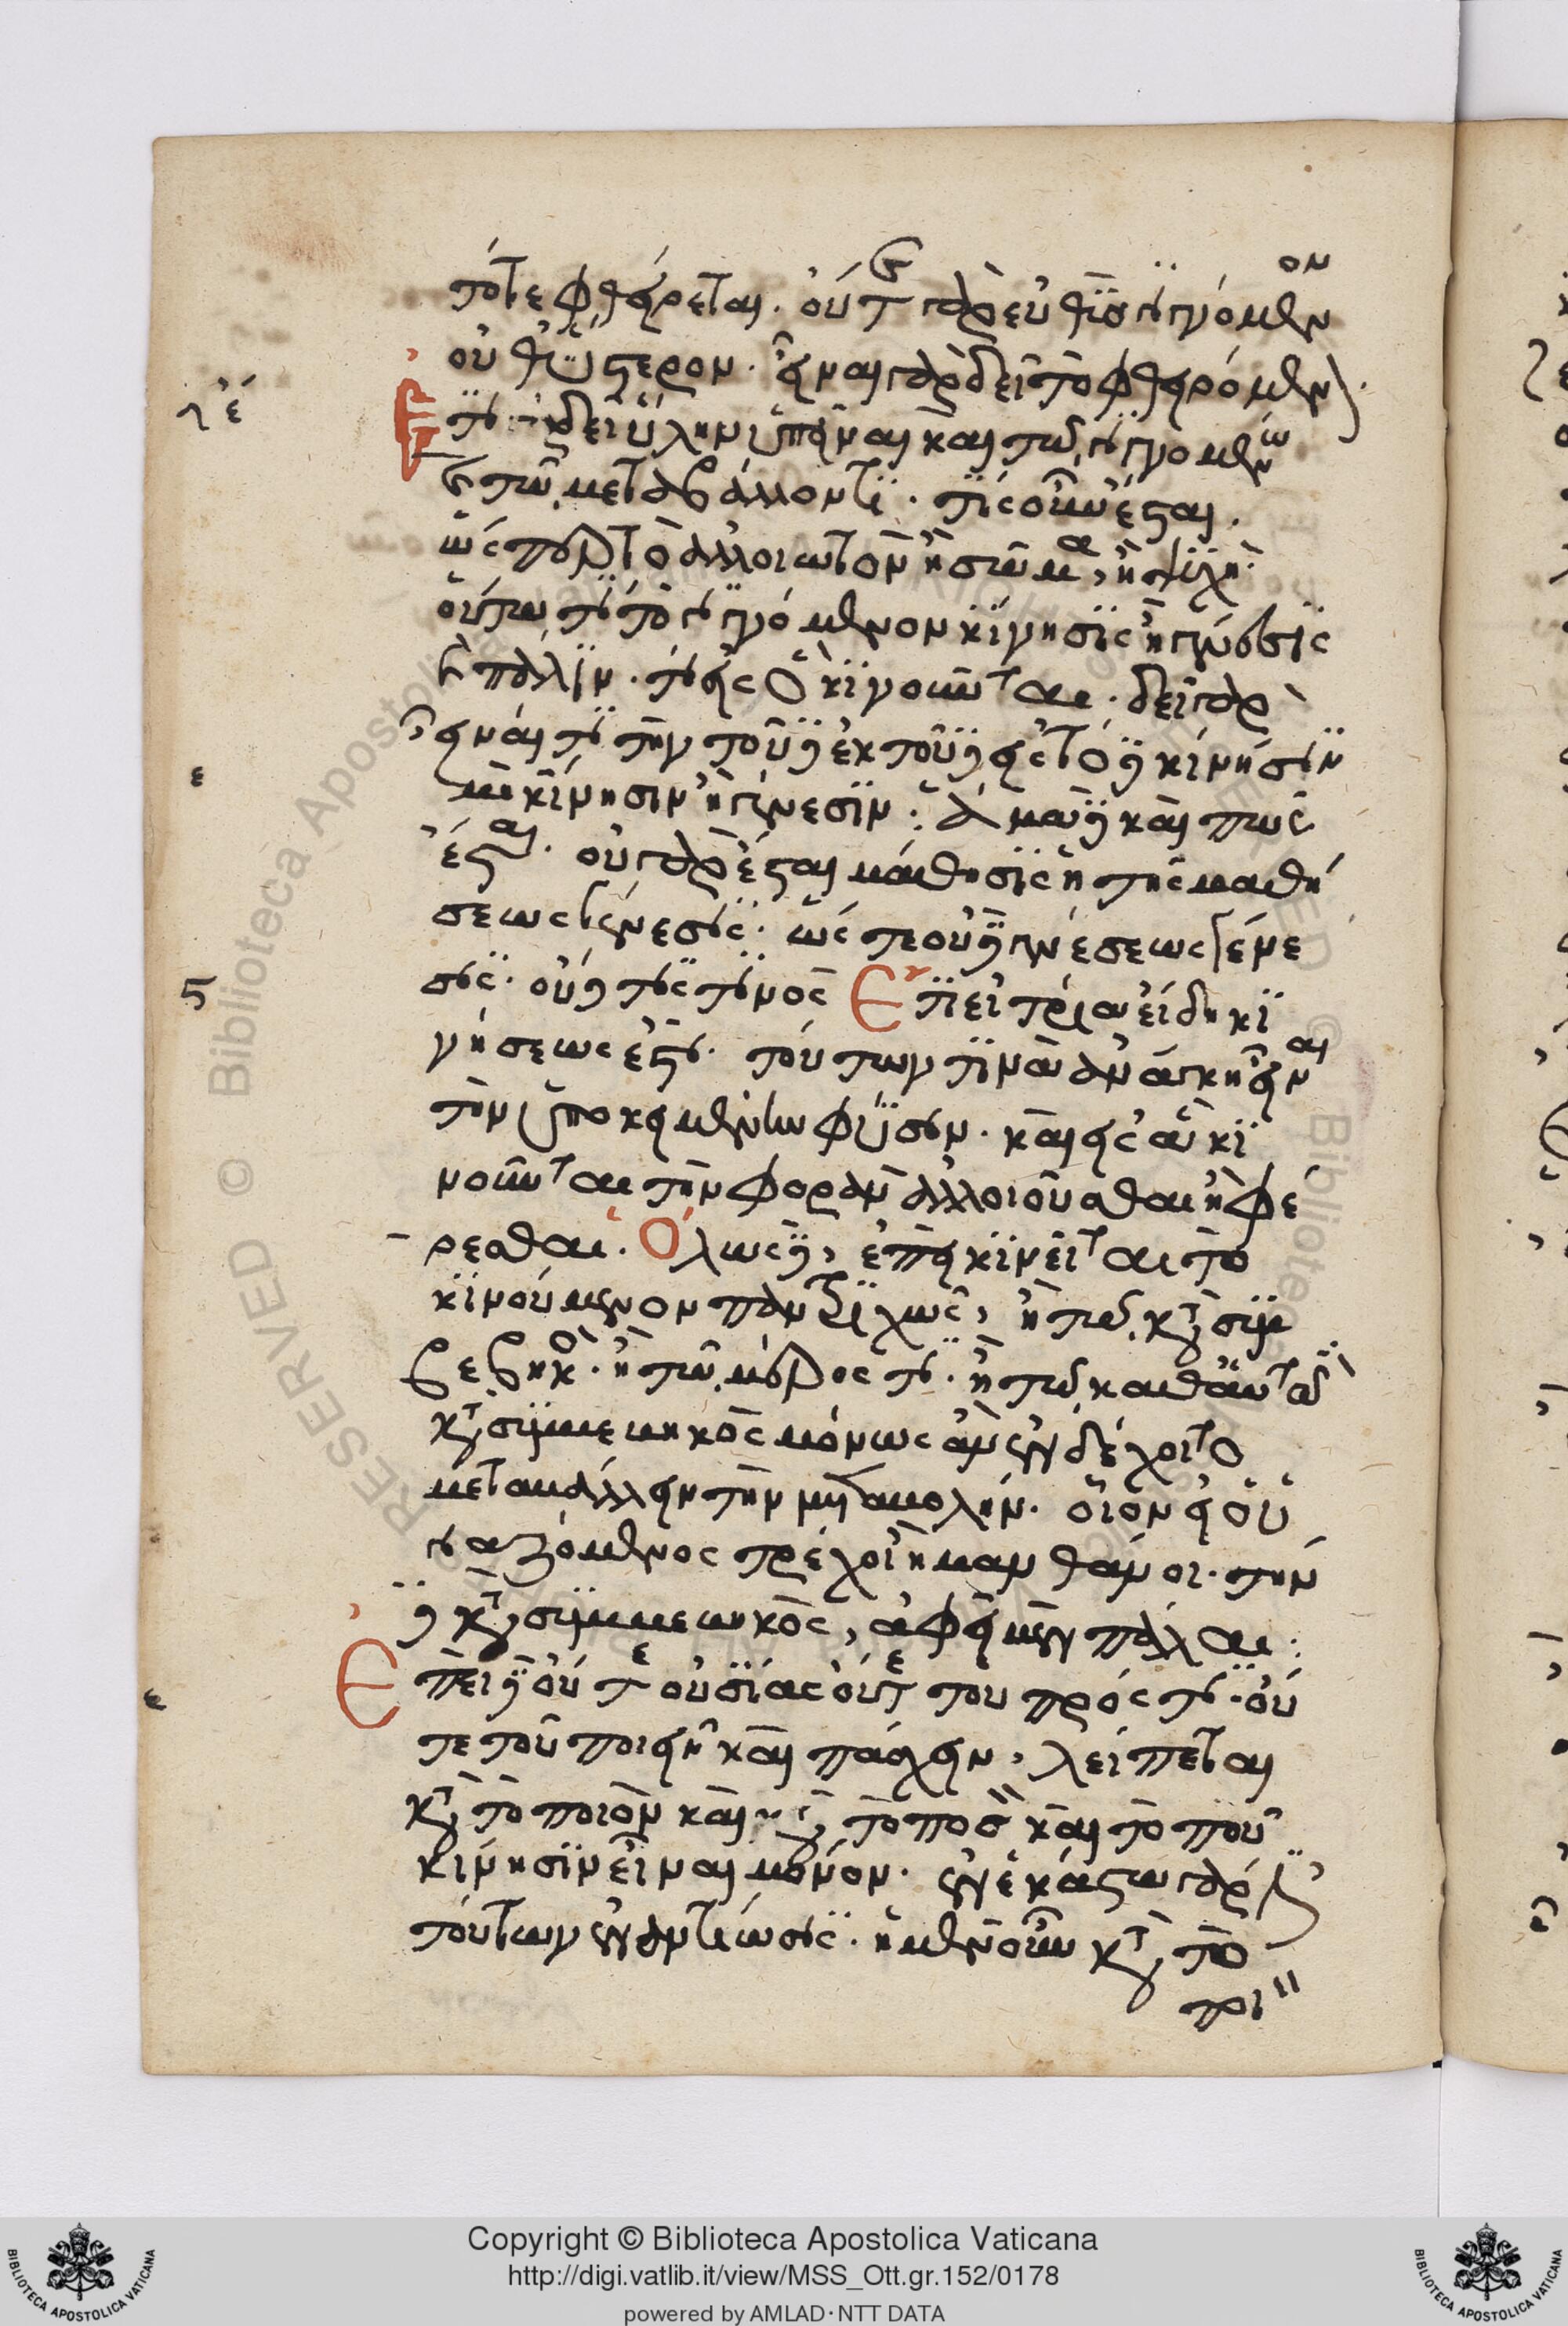 τότε φθείρεται. οὔτε γὰρ εὐθὺς γιγνόμενον
οὔθ' ὕστερον. εἶναι γὰρ δεῖ τὸ φθειρόμενον.
Ἔτι δεῖ ὕλην ὑπεῖναι καὶ τῷ γιγνομένῳ
καὶ τῷ μεταβάλλοντι. τίς οὖν ἔσται.
ὥσπερ τὸ ἀλλοιωτὸν ἢ σῶμα, ἢ ψυχή.
οὕτω τί τὸ γιγνόμενον κίνησις ἢ γένεσις
καὶ πάλιν. τί εἰς ὃ κινοῦνται. δεῖ γὰρ
εἶναί τι τὴν τοῦδε ἐκ τοῦδε εἰς τόδε κίνησιν
μὴ κίνησιν ἢ γένεσιν. ἅμα δὲ καὶ πῶς
ἔσται. οὐ γὰρ ἔσται μάθησις ἡ τῆς μαθή
σεως γένεσις. ὥστε οὐδὲ γενέσεως γένε
σις. οὐδέ τίς τινος Ἐπεὶ τρία εἴδη κι
νήσεως ἐστι. τούτων τινὰ ἀνάγκη εἶναι
τὴν ὑποκειμένην φύσιν. καὶ εἰς ἃ κι
νοῦνται τὴν φορὰν ἀλλοιοῦσθαι ἢ φέ
ρεσθαι. Ὅλως δὲ, ἐπεὶ κινεῖται τὸ
κινούμενον πᾶν τριχῶς, ἢ τῷ κατὰ συμ
βεβηκὸς. ἢ τῷ μέρος τι. ἢ τῷ καθ' αὑτὸ
κατὰ συμβεβηκὸς μόνως ἂν ἐνδέχοιτο
μεταβάλλειν τὴν μεταβολήν. οἷον εἰ ὁ ὑ
γιαζόμενος τρέχοι ἢ μανθάνοι. τὴν
δὲ κατὰ συμβεβηκὸς, ἀφεῖμεν πάλαι.
Ἐπεὶ δὲ οὔτε οὐσίας οὔτε τοῦ πρός τι. οὔ
τε τοῦ ποιεῖν καὶ πάσχειν, λείπεται
κατὰ τὸ ποιὸν καὶ τὸ ποσὸν καὶ τὸ ποῦ
κίνησιν εἶναι μόνον. ἐν ἑκάστῳ γὰρ ἔστι
τούτων ἐναντίωσις. ἡ μὲν οὖν κατὰ τὸ
ποι
ιέ
ε
ϛ
ε
Copyright © Biblioteca Apostolica Vaticana
http://digi.vatlib.it/view/MSS_Ott.gr.152/0178
powered by AMLAD · NTT DATA